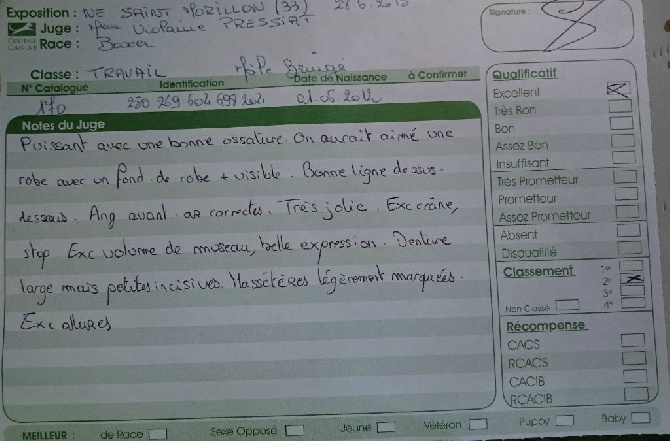 Exposition : NE SAINT MORILLON (33) 28.6.2015
Juge : Mme Violaine PRESSIAT
Race : Boxer
Signature :
Classe : TRAVAIL Mâle Bringé
N° Catalogue Identification Date de Naissance à Confirmer
170 250 269 604 698 2021 01 05 2012
Notes du Juge
Puissant avec une bonne ossature. On aurait aimé une
robe avec un fond de robe + visible. Bonne ligne dessus-
dessous. Ang avant ar correctes. Très jolie. Exc crâne,
stop. Exc volume de museau, belle expression. Denture
large mais petites incisives. Massétères légèrement marquées.
Exc allures
Qualificatif
Excellent
Très Bon
Bon
Assez Bon
Insuffisant
Très Prometteur
Prometteur
Assez Prometteur
Absent
Disqualifié
Classement 1°
2°
3°
Non Classé 4°
Récompense
CACS
RCACS
CACIB
RCACIB
MEILLEUR : de Race Sexe Opposé Jeune Vétéran Puppy Baby